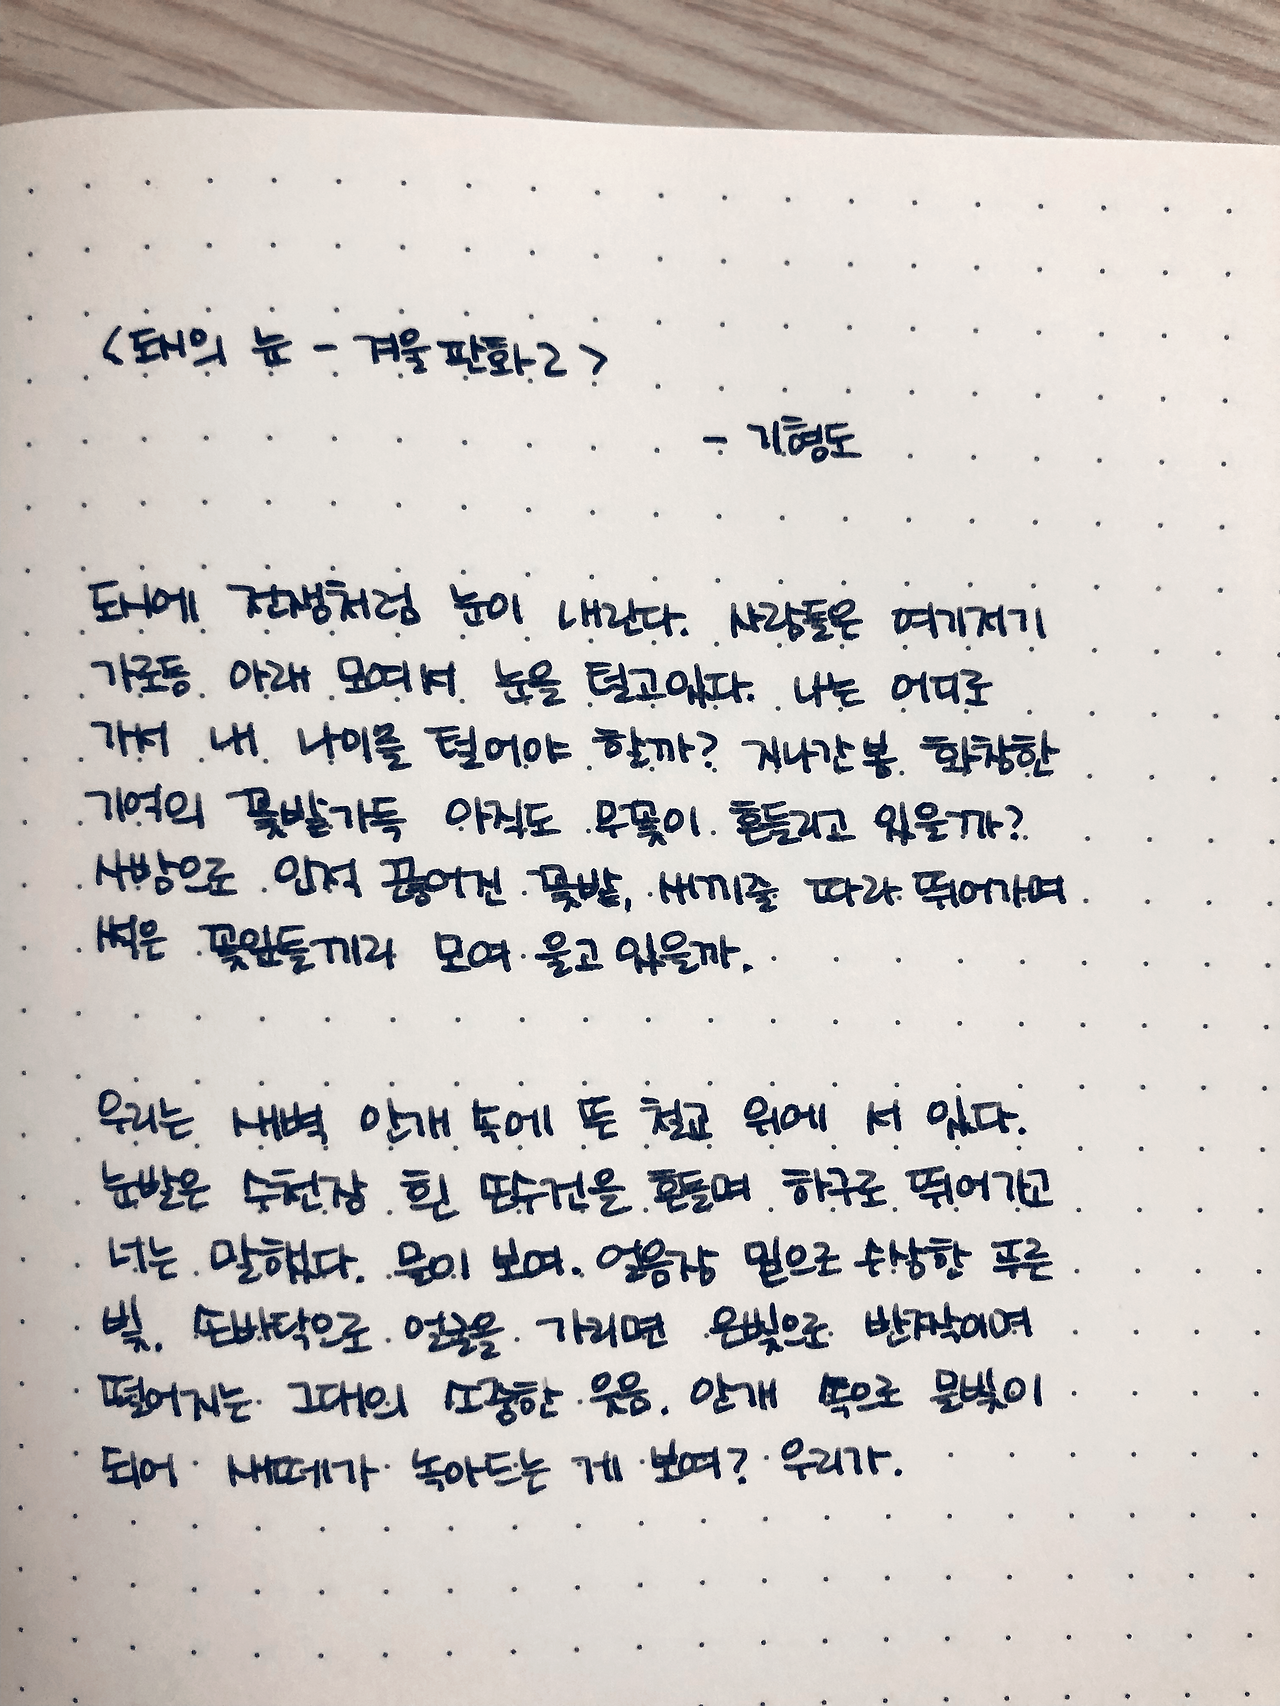 <도시의 눈 - 겨울 판화 2>
- 기형도
도시에 전쟁처럼 눈이 내린다. 사람들은 여기저기
가로등 아래 모여서 눈을 털고있다. 나는 어디로
가서 내 나이를 털어야 할까? 지나간 봄 화창한
기억의 꽃밭가득 아직도 무꽃이 흔들리고 있을까?
사방으로 인적 끊어진 꽃밭, 새끼줄 따라 뛰어가며
썩은 꽃잎들끼리 모여 울고 있을까.
우리는 새벽 안개 속에 뜬 철교 위에 서 있다.
눈발은 수천장 흰 손수건을 흔들며 하구로 뛰어가고
너는 말했다. 물이 보여. 얼음장 밑으로 수상한 푸른
빛. 손바닥으로 얼굴을 가리면 은빛으로 반짝이며
떨어지는 그대의 소중한 웃음. 안개 속으로 물빛이
되어 새떼가 녹아드는 게 보여? 우리가.